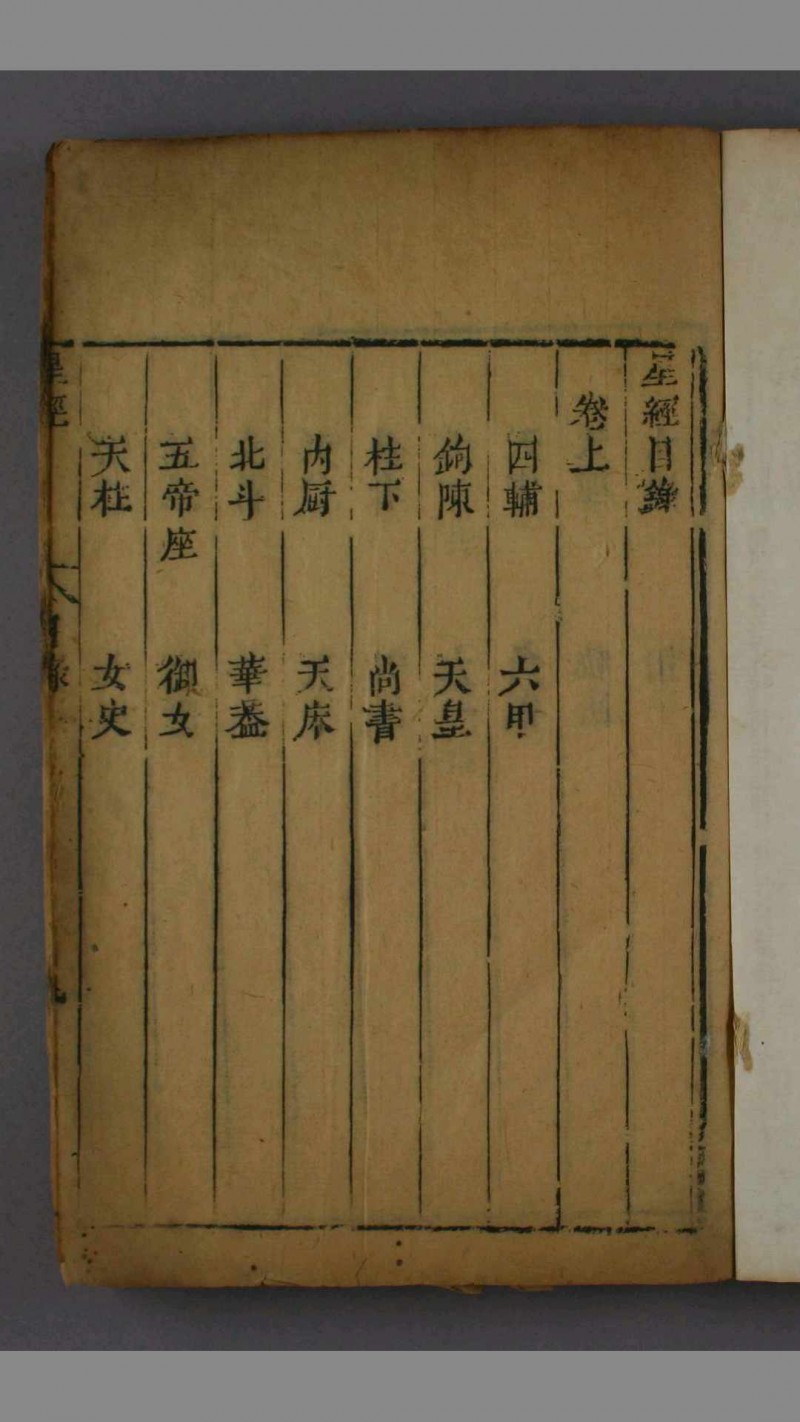 星經目錄
卷上
四輔 六甲
鉤陳 天皇
柱下 尚書
内厨 天床
北斗 華葢
五帝座 御女
天柱 女史
星經 目錄